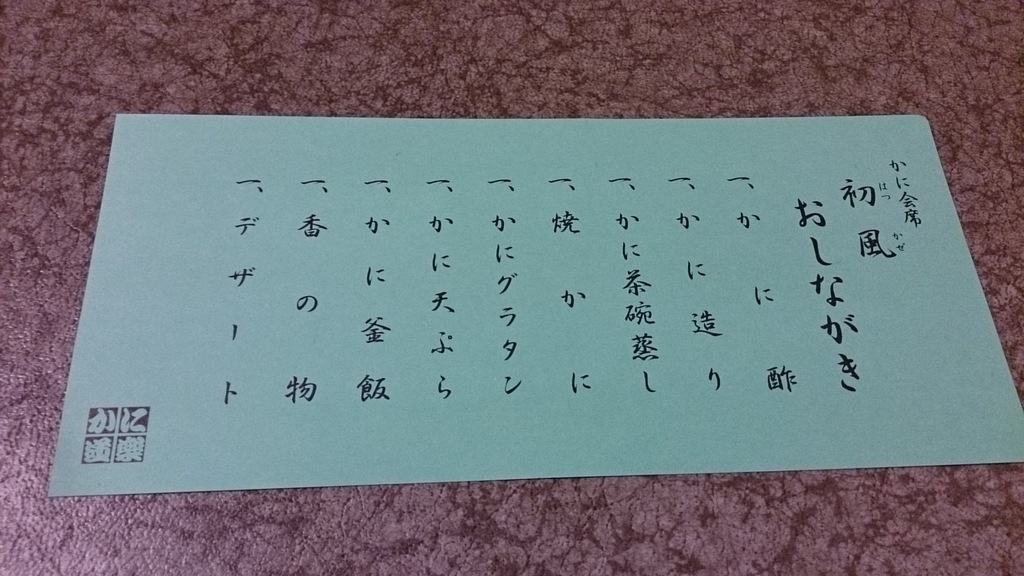 かに会席
初風
はつ かぜ
おしながき
一、かに酢
一、かに造り
一、かに茶碗蒸し
一、焼かに
一、かにグラタン
一、かに天ぷら
一、かに釜飯
一、香の物
一、デザート
かに道楽